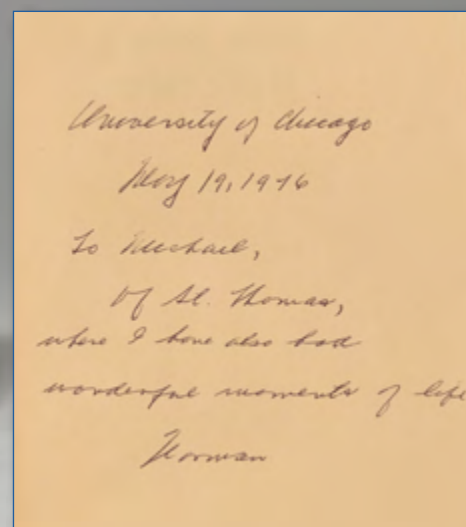 University of Chicago
May 19, 1976
To Michael,
Of St. Thomas,
where I have also had
wonderful moments of life
Norman